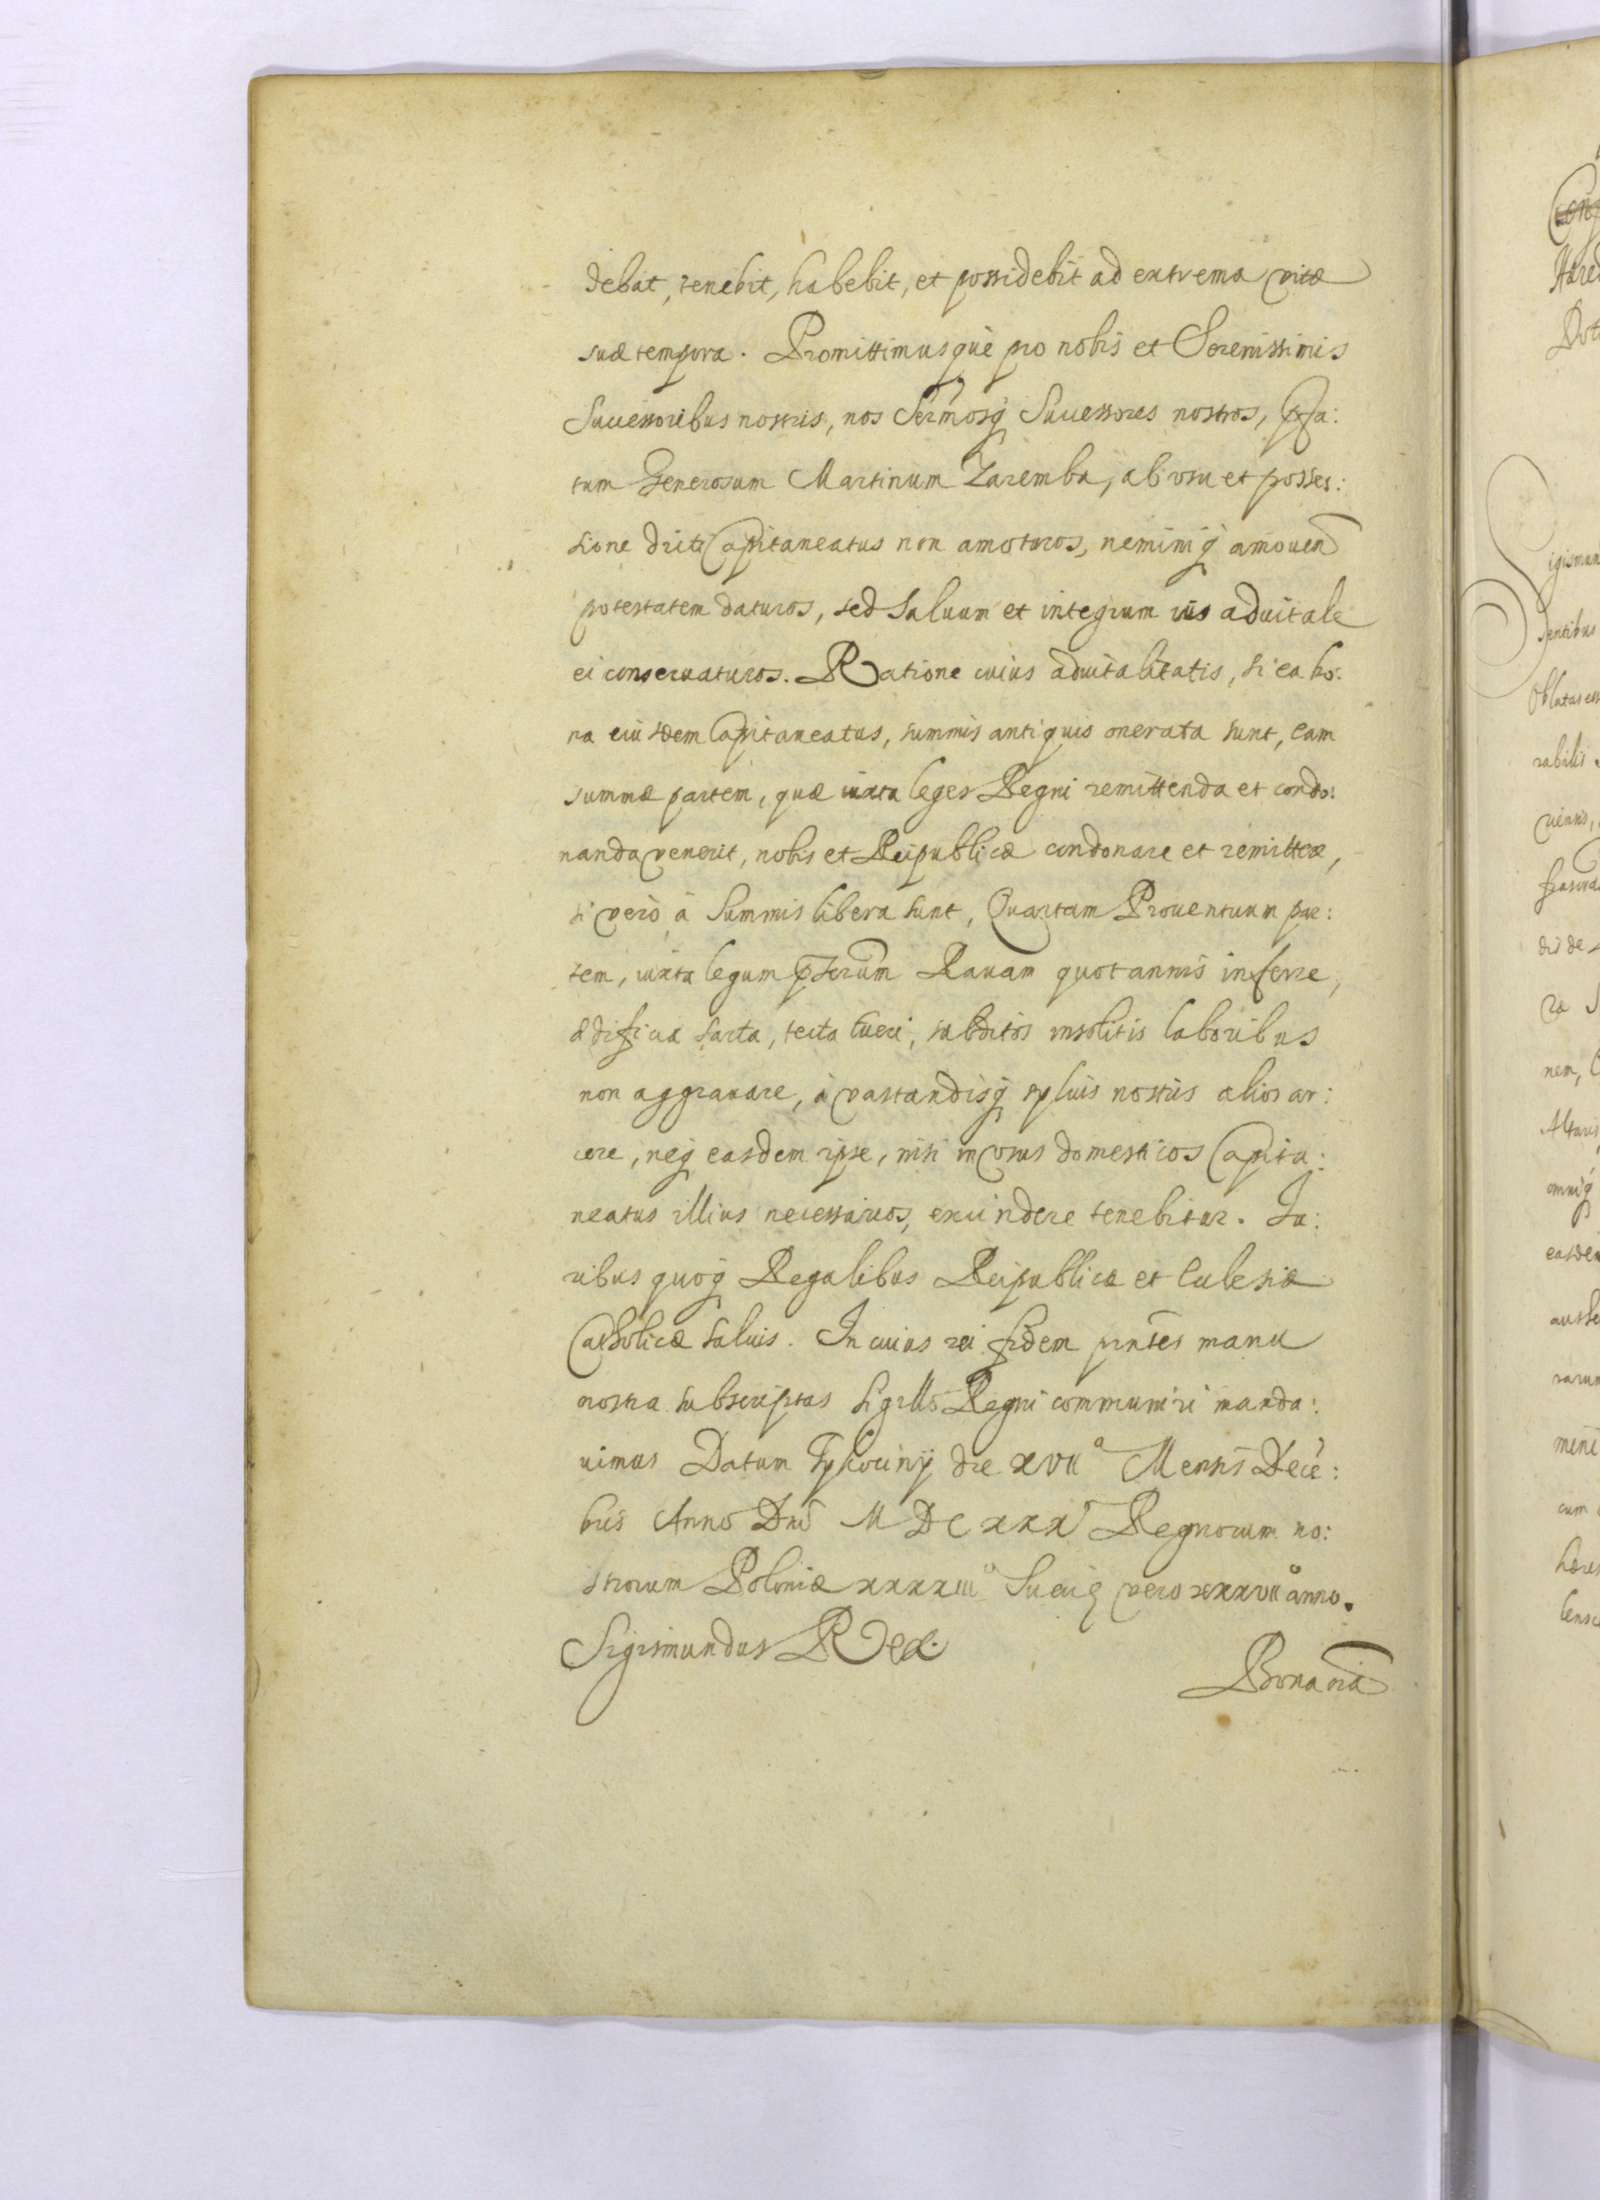 debat, tenebit, habebit, et possidebit ad extrema vitæ
suæ tempora. Promittimusquè pro nobis et Serenissimis
Successoribus nostris, nos Sermosq Successores nostros, præfa:
tum Generosum Martinum Zaremba, ab vsu et posses:
sione dicti Capitaneatus non amoturos, neminiq amouen
potestatem daturos, sed saluum et integrum ius aduitale
ei conseruaturos. Ratione cuius aduitalitatis, si ea bo:
na eiusdem Capitaneatus, summis antiquis onerata sunt, eam
summæ partem, quæ iuxta leges Regni remittenda et condo:
nanda venerit, nobis et Reipublicæ condonare et remittere,
si verò à summis libera sunt, Quartam Prouentuum par:
tem, iuxta legum pscrum Rauam quotannis inferre,
ædificia sarta, tecta tueri, subditos insolitis laboribus
non aggrauare, à vastandisq syluis nostris alios ar:
cere, neq easdem ipse, nisi in vsus domesticos Capita:
neatus illius necessarios, excindere tenebitur. Iu:
ribus quoq Regalibus Reipublicæ et Ecclesiæ
Catholicæ saluis. In cuius rei fidem pntes manu
nostra subscriptas sigillo Regni communiri manda:
uimus Datum Tykociny die XVII Mensis Decē:
bris Anno Dni MDCXXX Regnorum no:
strorum Poloniæ XXXXIII Sueciæ vero XXXVII anno.
Sigismundus Rex.